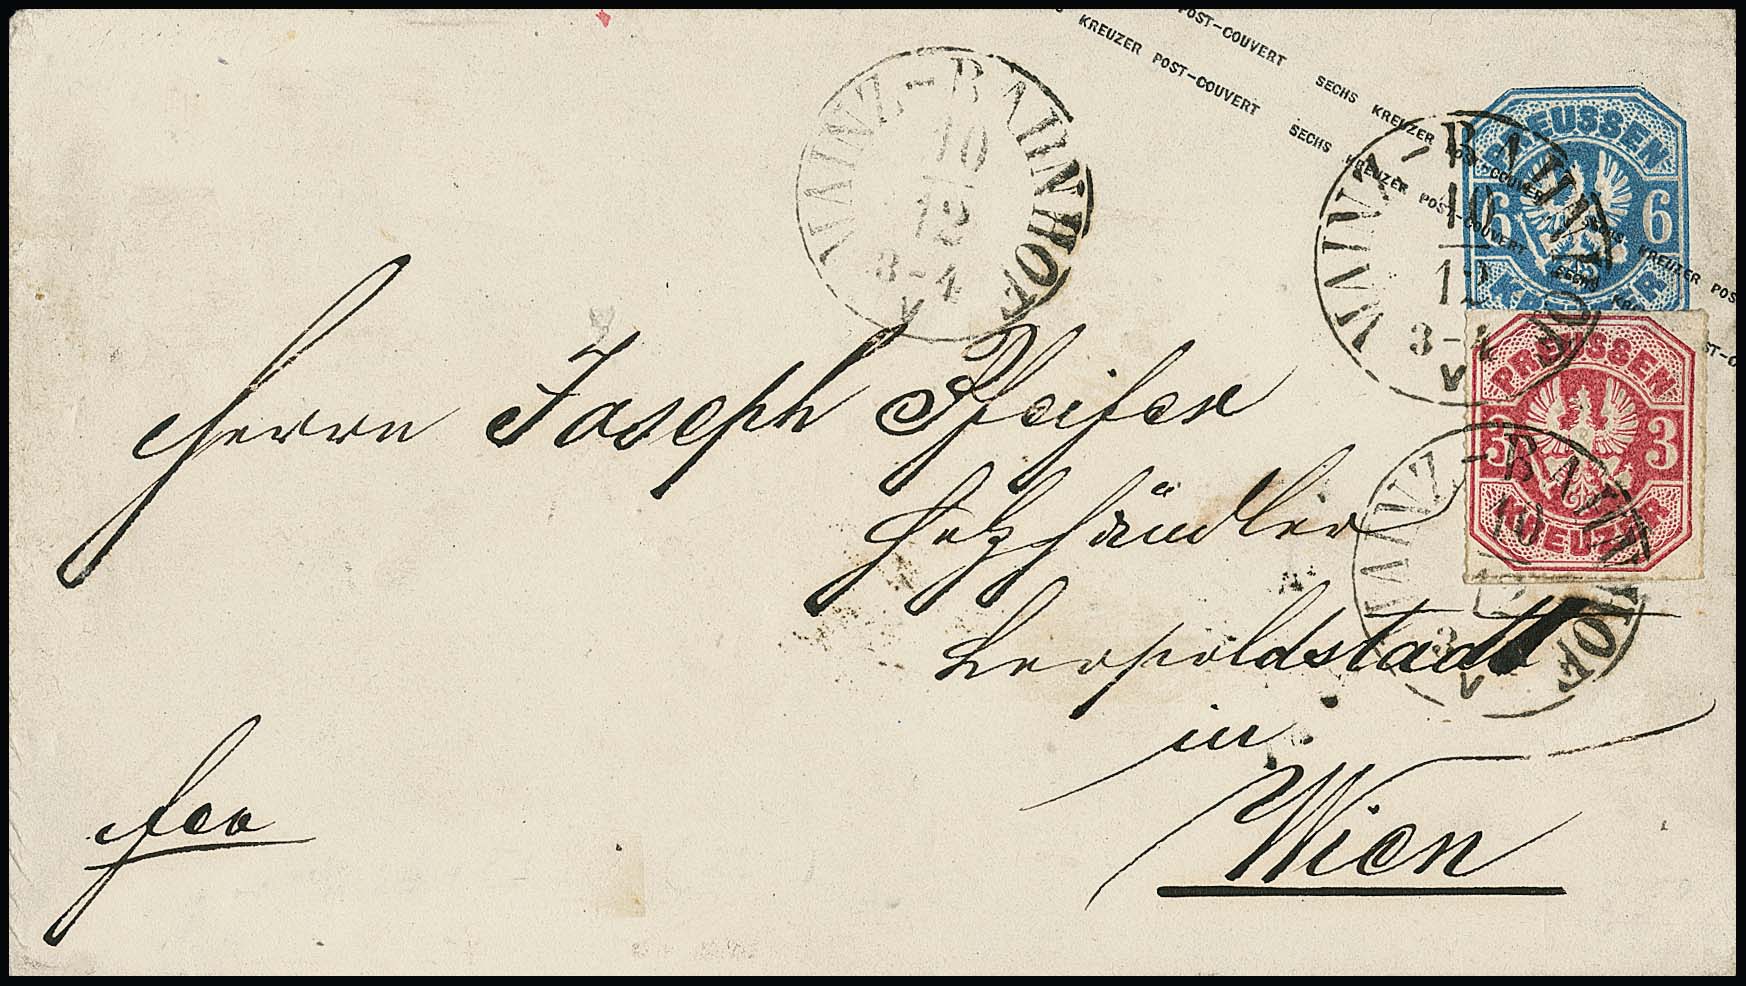 S KREUZER POST-COUVERT SECHS KREUZER POST-COUVERT SECHS KREUZER POS
KREUZER POST-COUVERT SECHS KREUZER POST-COUVERT SECHS KR ST-C
PREUSSEN
6 6
KREUZER
MAINZ-BAHNHOF
10
12
3-4
V
MAINZ-BAHNHOF
10
12
3-4
V
PREUSSEN
3 3
KREUZER
MAINZ-BAHNHOF
10
12
3
V
Herrn Joseph Pfeifer
händler
Leopoldstadt
in
Wien
fco